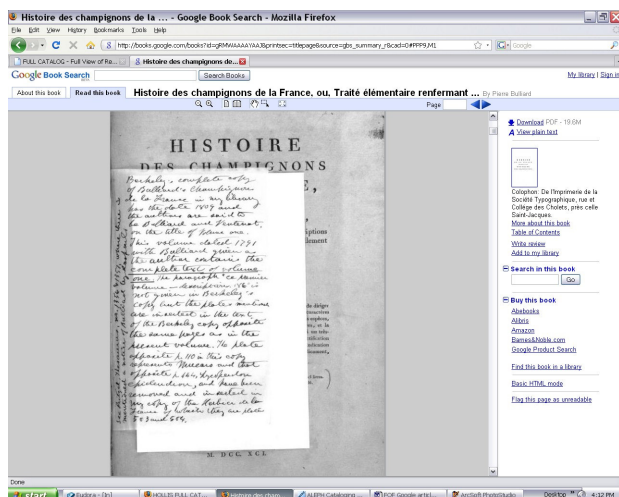 Histoire des champignons de la ... - Google Book Search - Mozilla Firefox
File Edit View History Bookmarks Tools Help
http://books.google.com/books?id=gRMWAAAAYAAJ&printsec=titlepage&source=gbs_summary_r&cad=0#PPP9,M1
Google
FULL CATALOG - Full View of Re...
Histoire des champignons de...
Google Book Search
Search Books
My library | Sign in
About this book
Read this book
Histoire des champignons de la France, ou, Traité élémentaire renfermant ... By Pierre Bulliard
Page
HISTOIRE
DES CHAMPIGNONS
Berkeley's complete copy
of Bulliard's Champignons
de la France in my library
has the date 1809 and
the authors are said to
be Bulliard and Ventenat,
on the title of volume one.
This volume dated 1791
with Bulliard given as
the author contains the
complete text of volume
one. The paragraph "ce premier
volume
not given in Berkeley's
copy but the plates mentioned
are inserted in the text
of the Berkeley copy opposite
the same pages as in the
present volume. The plate
opposite p. 110 in this copy
represents Mucors and that
opposite p.
epidendron, and have been
removed and inserted in
my copy of the Herbier de la
France of which they are plate
503 and 504.
M. DCC. XCI.
Download PDF - 19.6M
View plain text
Colophon: De l'Imprimerie de la
Société Typographique, rue et
Collège des Cholets, près celle
Saint-Jacques.
More about this book
Table of Contents
Write review
Add to my library
Search in this book
Go
Buy this book
Abebooks
Alibris
Amazon
Barnes&Noble.com
Google Product Search
Find this book in a library
Basic HTML mode
Flag this page as unreadable
Done
start
Eudora - [In]
HOLLIS FULL CAT...
Histoire des cham...
ALEPH Cataloging ...
PDF Google articl...
ArcSoft PhotoStudio
Desktop
4:12 PM